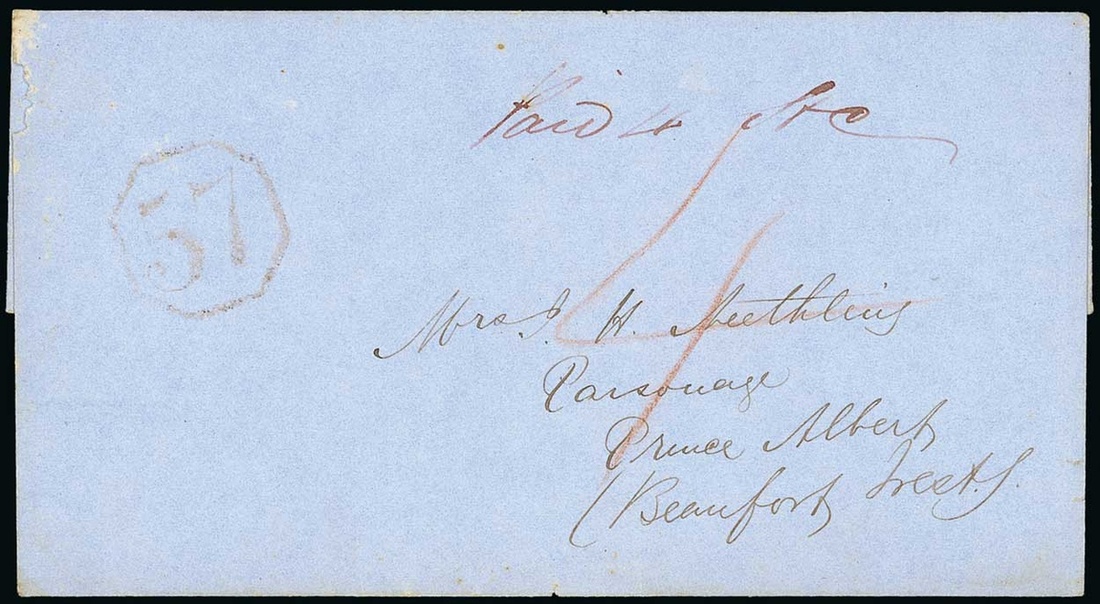 Paid 4
57
4
Mrs J. H. Neethling
Parsonage
Prince Albert
(Beaufort West.)